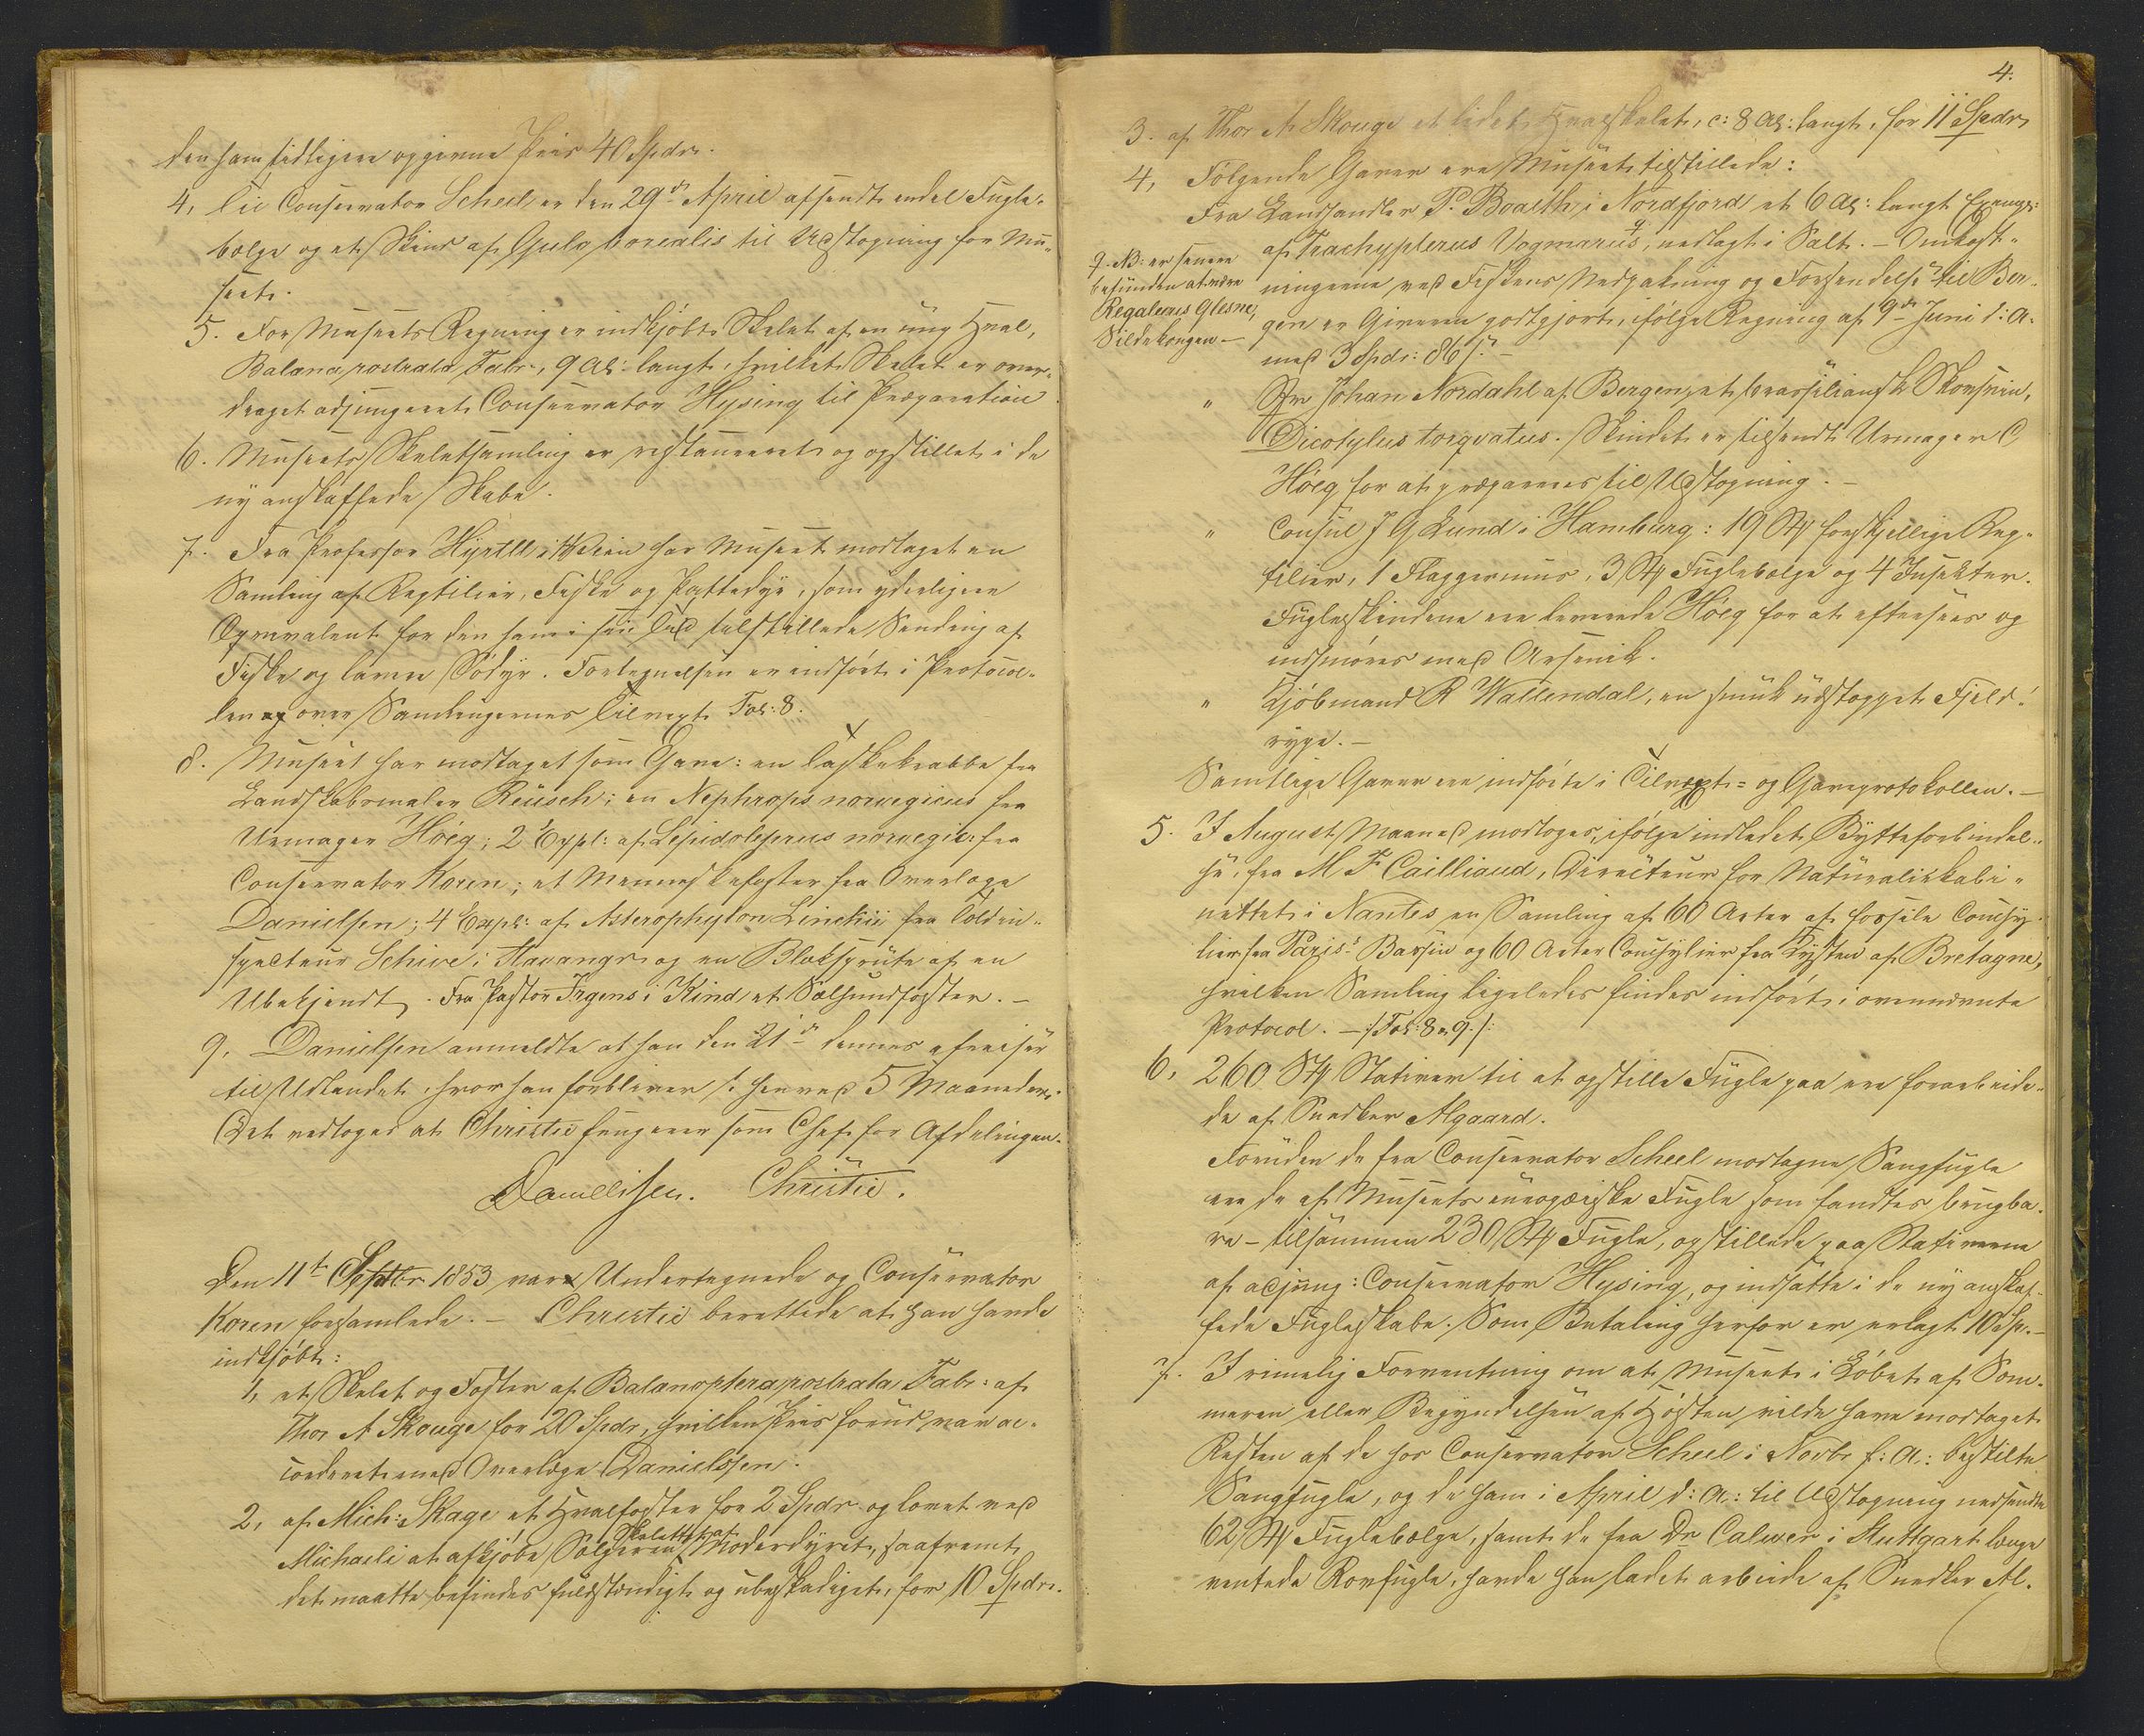 den ham tidligere opgivne Priis 40 Spdr.
4, Til Conservator Scheel er den 29de April afsendt endel Fugle-
bælge og et Skind af Gulo borealis til Udstopning for Mu-
seet.
5. For Museets Regning er indkjøbt Skelet af en ung Hval,
Balæna rostrata Fabr., 9 Al: langt, hvilket Skelet er over-
draget adjungeret Conservator Hysing til Præparation
6. Museets Skeletsamling er restaureret og opstillet i de
ny anskaffede Skabe.
7. Fra Professor Hyrtll i Wien har Museet modtaget en
Samling af Reptilier, Fiske og Pattedyr, som yderligere
Æqvivalent for den ham i sin Tid tilstillede Sending af
Fiske og lavere Sødyr. Fortegnelsen er indført i Protocol-
len over Samlingernes Tilvext Fol: 8.
8. Museet har modtaget som Gave: en Taskekrabbe fra
Landskabsmaler Reusch; en Nephrops norvegicus fra
Urmager Höeg; 2 Expl: af Lepidoleprus norvegic: fra
Conservator Koren; et Menneskefoster fra Overlæge
Danielsen; 4 Expl: af Asterophyton Linckii fra Toldin-
specteur Schive i Stavanger og en Blæksprute af en
Ubekjendt. Fra Pastor Irgens i Kind et Sælhundfoster. —
9, Danielsen anmeldte at han den 21de dennes afreiser
til Udlandet, hvor han forbliver henved 5 Maaneder.
Det vedtoges at Christie fungerer som Chef for Afdelingen.
Danielssen. Christie.
Den 11te Septbr 1853 var Undertegnede og Conservator
Koren forsamlede. — Christie berettede at han havde
indkjøbt:
1, et Skelet og Foster af Balænoptera rostrata Fabr: af
Thor A Skouge for 20 Spdr, hvilken Priis forud var ac-
corderet med Overlæge Danielssen.
2, af Mich: Skage et Hvalfoster for 2 Spdr og lovet ved
Michaeli at afkjøbe Sælgeren Skelettet af Moderdyret, saafremt
det maatte befindes fuldstændigt og ubeskadiget, for 10 Spdr.
4.
3. af Thor A Skouge et lidet Hvalskelet, c: 8 Al: langt, for 11 Spdr
4, Følgende Gaver ere Museet tilstillede:
Fra Landhandler P. Boalth i Nordfjord et 6 Al: langt Exempl:
af Trachypterus Vogmarus, nedlagt i Salt. — Omkost-
NB: er senere
befunden at være
Regalecus Glesne,
Sildekongen —
ningerne ved Fiskens Nedpakning og Forsendelse til Ber-
gen er Giveren godtgjort, ifølge Regning af 9de Juni d: A.
med 3 Spdr: 86 s. —
" Hr Johan Nordahl af Bergen, et brasiliansk Skovsvin,
Dicotylus torqvatus. Skindet er tilsendt Urmager C
Höeg for at præpareres til Udstopning. —
" Consul J G Lund i Hamburg: 19 St forskjellige Rep-
tilier, 1 Flaggermus, 3 St Fuglebælge og 4 Insekter.
Fugleskindene ere leverede Höeg for at eftersees og
indsmøres med Arsenik.
" Kjøbmand R Wallendal, en smuk udstoppet Fjeld-
rype. —
Samtlige Gaver ere indførte i Tilvext- og Gaveprotokollen. —
5. I August Maaned modtoges, ifølge indledet Bytteforbindel-
se, fra M F Cailliaud, Directeur for Naturaliekabi-
nettet i Nantes en Samling af 60 Arter af fossile Conchy-
lier fra Paris's Bassin og 60 Arter Conchylier fra Kysten af Bretagne,
hvilken Samling ligeledes findes indført i ovennævnte
Protocol. — /: Fol: 8 & 9. :/
6, 260 St Stativer til at opstille Fugle paa ere forarbeide-
de af Snedker Algaard.
Foruden de fra Conservator Scheel modtagne Sangfugle
ere de af Museets europæiske Fugle som fandtes brugba-
re — tilsammen 230 St Fugle, opstillede paa Stativerne
af adjung: Conservator Hysing, og indsatte i de ny anskaf-
fede Fugleskabe. Som Betaling herfor er erlagt 10 Sp. —
7. I rimelig Forventning om at Museet i Løbet af Som-
meren eller Begyndelsen af Høsten vilde have modtaget
Resten af de hos Conservator Scheel i Novbr f: A: bestilte
Sangfugle, og de ham i April d: A: til Udstopning nedsendte
62 St Fuglebælge, samt de fra Dr Calwer i Stuttgart længe
ventede Rovfugle, havde han ladet arbeide af Snedker Al-